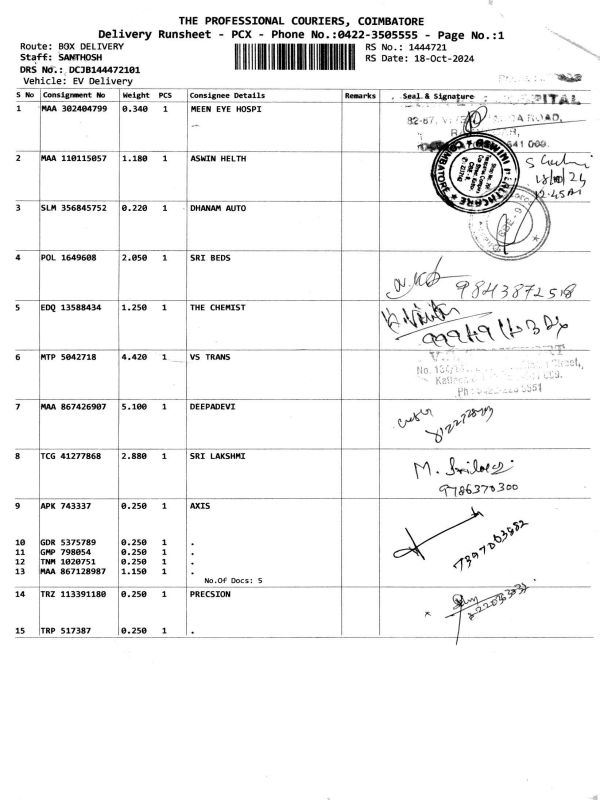 THE PROFESSIONAL COURIERS, COIMBATORE
Delivery Runsheet - PCX - Phone No.:0422-3505555 - Page No.:1
Route: BOX DELIVERY RS No.: 1444721
Staff: SANTHOSH RS Date: 18-Oct-2024
DRS No.: DCJB144472101
Vehicle: EV Delivery
S No Consignment No Weight PCS Consignee Details Remarks Seal & Signature
1 MAA 302404799 0.340 1 MEEN EYE HOSPI
ROAD,
641 009.
2 MAA 110115057 1.180 1 ASWIN HELTH
COIMBATORE
18/10/24
12.45
3 SLM 356845752 0.220 1 DHANAM AUTO
4 POL 1649608 2.050 1 SRI BEDS
9843872518
5 EDQ 13588434 1.250 1 THE CHEMIST
6 MTP 5042718 4.420 1 VS TRANS
Street,
7 MAA 867426907 5.100 1 DEEPADEVI
8 TCG 41277868 2.880 1 SRI LAKSHMI
M.
9786370300
9 APK 743337 0.250 1 AXIS
7397063882
10 GDR 5375789 0.250 1 .
11 GMP 798054 0.250 1 .
12 TNM 1020751 0.250 1 .
13 MAA 867128987 1.150 1 .
No.Of Docs: 5
14 TRZ 113391180 0.250 1 PRECSION
15 TRP 517387 0.250 1 .